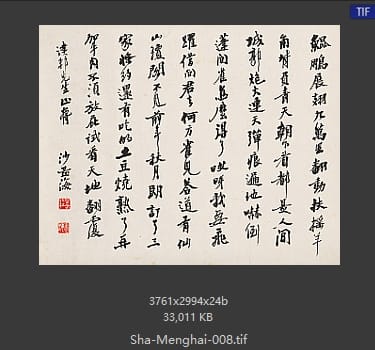 TIF
鯤鵬展翅九萬里翻動扶搖羊
角背負青天朝下看都是人間
城郭炮火連天彈痕遍地嚇倒
蓬間雀怎麼得了哎呀我要飛
躍借問君去何方雀兒答道有仙
山瓊閣不見前年秋月朗訂了三
家條約還有吃的土豆燒熟了再
加牛肉不須放屁試看天地翻覆
邦先生正 沙孟海
3761x2994x24b
33,011 KB
Sha-Menghai-008.tif